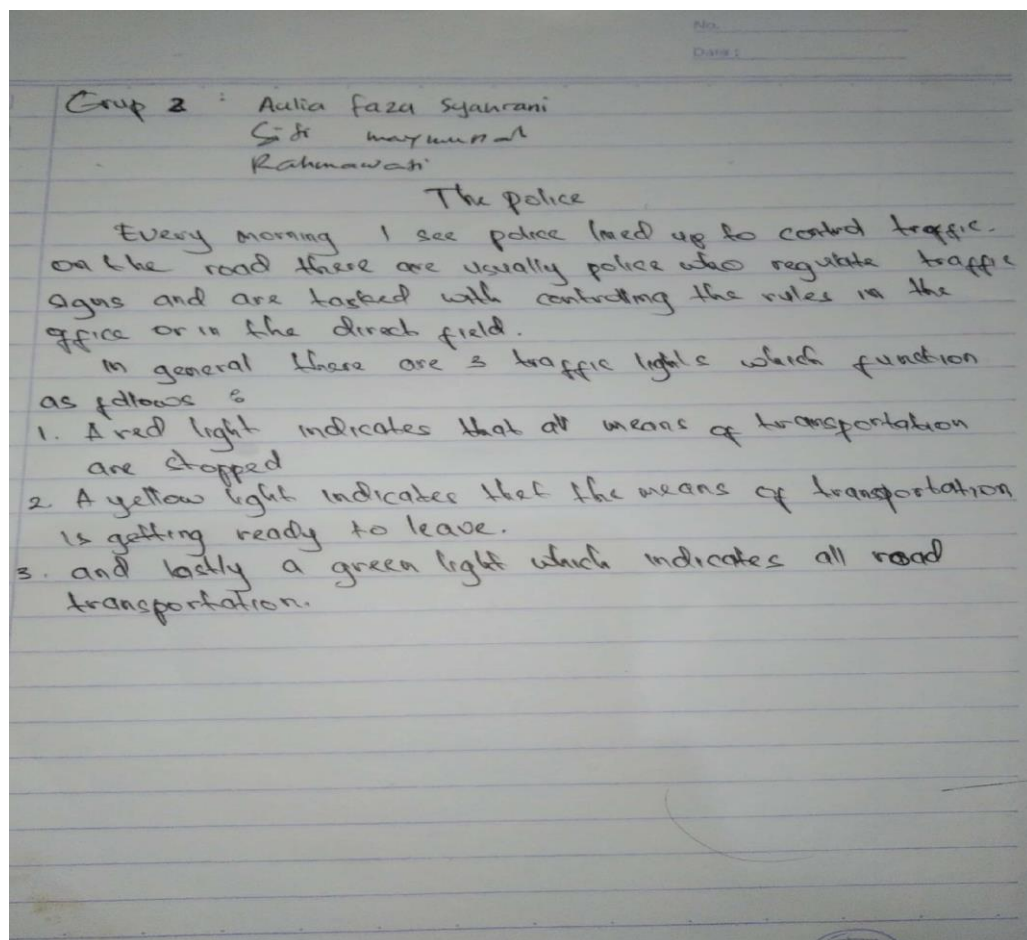 No.
Date :
Grup 2 : Aulia Faza Syahrani
Siti maymunah
Rahmawati
The police
Every morning I see police lined up to control traffic.
on the road there are usually police who regulate traffic
signs and are tasked with controlling the rules in the
office or in the direct field.
In general there are 3 traffic lights which function
as follows :
1. A red light indicates that all means of transportation
are stopped
2. A yellow light indicates that the means of transportation
is getting ready to leave.
3. and lastly a green light which indicates all road
transportation.